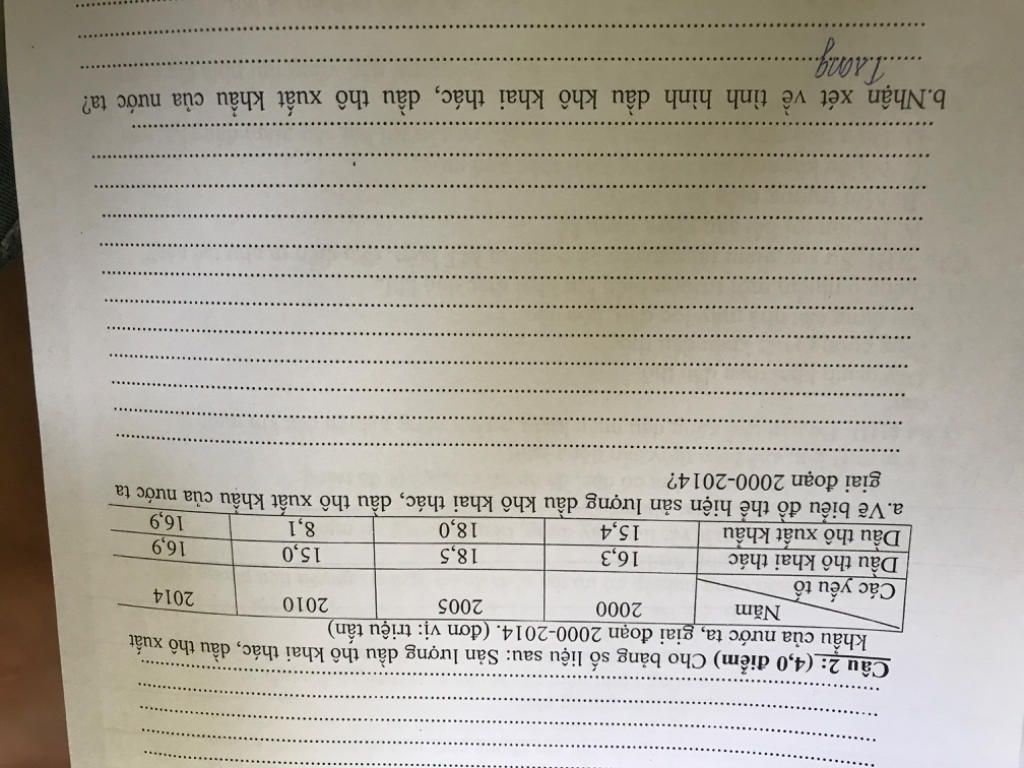 Câu 2: (4,0 điểm) Cho bảng số liệu sau: Sản lượng dầu thô khai thác, dầu thô xuất
khẩu của nước ta, giai đoạn 2000-2014. (đơn vị: triệu tấn)
Năm 2000 2005 2010 2014
Các yếu tố
Dầu thô khai thác 16,3 18,5 15,0 16,9
Dầu thô xuất khẩu 15,4 18,0 8,1 16,9
a.Vẽ biểu đồ thể hiện sản lượng dầu khô khai thác, dầu thô xuất khẩu của nước ta
giai đoạn 2000-2014?
b.Nhận xét về tình hình dầu khô khai thác, dầu thô xuất khẩu của nước ta?